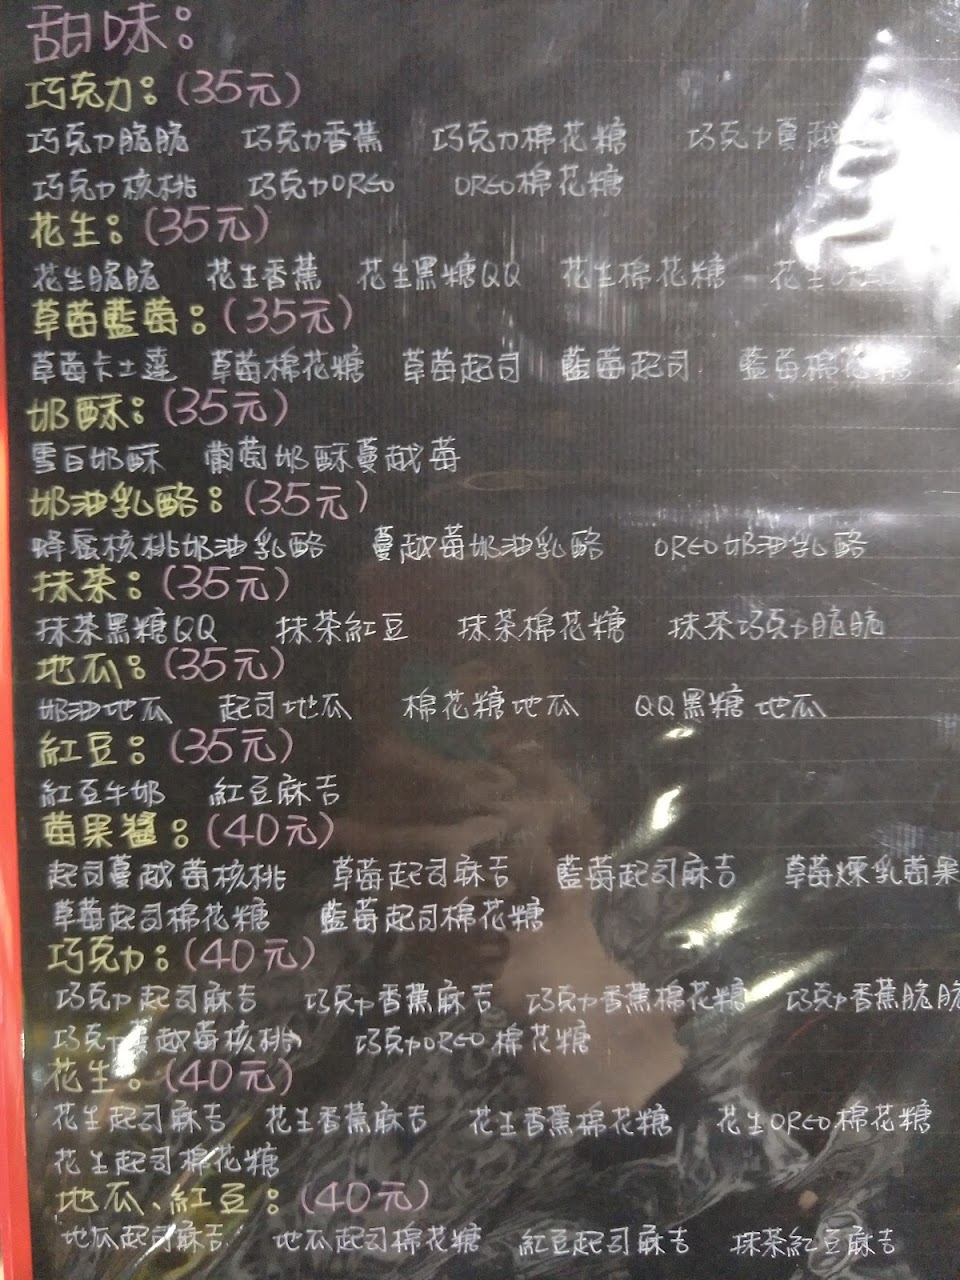 甜味：
巧克力：(35元)
巧克力脆脆 巧克力香蕉 巧克力棉花糖 巧克力蔓越
巧克力核桃 巧克力OREO OREO棉花糖
花生：(35元)
花生脆脆 花生香蕉 花生黑糖QQ 花生棉花糖 花生
草莓藍莓：(35元)
草莓卡士達 草莓棉花糖 草莓起司 藍莓起司 藍莓棉花糖
奶酥：(35元)
雪白奶酥 葡萄奶酥蔓越莓
奶油乳酪：(35元)
蜂蜜核桃奶油乳酪 蔓越莓奶油乳酪 OREO奶油乳酪
抹茶：(35元)
抹茶黑糖QQ 抹茶紅豆 抹茶棉花糖 抹茶巧克力脆脆
地瓜：(35元)
奶油地瓜 起司地瓜 棉花糖地瓜 QQ黑糖地瓜
紅豆：(35元)
紅豆牛奶 紅豆麻吉
莓果醬：(40元)
起司蔓越莓核桃 草莓起司麻吉 藍莓起司麻吉 草莓煉乳莓果
草莓起司棉花糖 藍莓起司棉花糖
巧克力：(40元)
巧克力起司麻吉 巧克力香蕉麻吉 巧克力香蕉棉花糖 巧克力香蕉脆脆
巧克力蔓越莓核桃 巧克力OREO棉花糖
花生：(40元)
花生起司麻吉 花生香蕉麻吉 花生香蕉棉花糖 花生OREO棉花糖
花生起司棉花糖
地瓜、紅豆：(40元)
地瓜起司麻吉 地瓜起司棉花糖 紅豆起司麻吉 抹茶紅豆麻吉